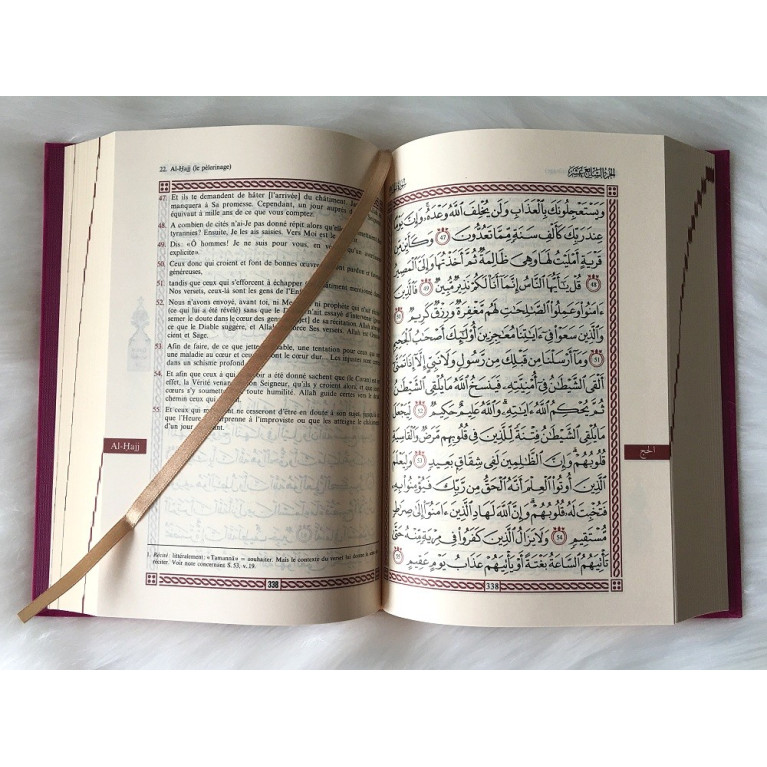 22. Al-Hajj (le pèlerinage)
47. Et ils te demandent de hâter [l'arrivée] du châtiment. Jamais
manquera à Sa promesse. Cependant, un jour auprès
équivaut à mille ans de ce que vous comptez.
48. A combien de cités n'ai-Je pas donné répit alors qu'elles
tyrannies? Ensuite, Je les ai saisies. Vers Moi est le
49. Dis: «Ô hommes! Je ne suis pour vous, en
explicite».
50. Ceux donc qui croient et font de bonnes pardon et
généreuses,
51. tandis que ceux qui s'efforcent à échapper mentionné
Nos versets, ceux-là sont les gens de
52. Nous n'avons envoyé, avant toi, ni ni prophète qui n'ait
(ce qui lui a été révélé) sans que le ait essayé
semer le doute dans le cœur des gens de sa récitation. Allah
ce que le Diable suggère, et Allah Ses versets. Allah est
cient et Sage.
53. Afin de faire, de ce que jette une tentation pour ceux qui
une maladie au cœur et ceux le cœur dur... Les injustes sont
dans un schisme profond.
54. Et afin que ceux à qui le a été donné sachent que (le Coran) est
effet, la Vérité venant Seigneur, qu'ils y croient alors et que
cœurs s'y soumettent toute humilité. Allah guide certes vers le
chemin ceux qui
55. Et ceux qui ne cesseront d'être en doute à son sujet, jusqu'à
que l'Heure à l'improviste ou que les atteigne le
d'un jour
Al-Hajj
1. Récité: littéralement: «Tamannā» = souhaiter. Mais le contexte du verset lui donne le sens
réciter. Voir note concernant S. 53, v. 19.
338
الجزء السابع عشر
وَيَسْتَعْجِلُونَكَ بِالْعَذَابِ وَلَن يُخْلِفَ اللَّهُ وَعْدَهُ وَإِنَّ يَوْمًا
عِندَ رَبِّكَ كَأَلْفِ سَنَةٍ مِّمَّا تَعُدُّونَ ٤٧ وَكَأَيِّن مِّن
قَرْيَةٍ أَمْلَيْتُ لَهَا وَهِيَ ظَالِمَةٌ ثُمَّ أَخَذْتُهَا وَإِلَيَّ الْمَصِيرُ
٤٨ قُلْ يَا أَيُّهَا النَّاسُ إِنَّمَا أَنَا لَكُمْ نَذِيرٌ مُّبِينٌ ٤٩ فَالَّذِينَ
ءَامَنُوا وَعَمِلُوا الصَّالِحَاتِ لَهُم مَّغْفِرَةٌ وَرِزْقٌ كَرِيمٌ ٥٠
وَالَّذِينَ سَعَوْا فِي ءَايَاتِنَا مُعَاجِزِينَ أُولَٰئِكَ أَصْحَابُ الْجَحِيمِ
٥١ وَمَا أَرْسَلْنَا مِن قَبْلِكَ مِن رَّسُولٍ وَلَا نَبِيٍّ إِلَّا إِذَا تَمَنَّىٰ
أَلْقَى الشَّيْطَانُ فِي أُمْنِيَّتِهِ فَيَنسَخُ اللَّهُ مَا يُلْقِي الشَّيْطَانُ
ثُمَّ يُحْكِمُ اللَّهُ ءَايَاتِهِ وَاللَّهُ عَلِيمٌ حَكِيمٌ ٥٢ لِّيَجْعَلَ
مَا يُلْقِي الشَّيْطَانُ فِتْنَةً لِّلَّذِينَ فِي قُلُوبِهِم مَّرَضٌ وَالْقَاسِيَةِ
قُلُوبُهُمْ وَإِنَّ الظَّالِمِينَ لَفِي شِقَاقٍ بَعِيدٍ ٥٣ وَلِيَعْلَمَ
الَّذِينَ أُوتُوا الْعِلْمَ أَنَّهُ الْحَقُّ مِن رَّبِّكَ فَيُؤْمِنُوا بِهِ
فَتُخْبِتَ لَهُ قُلُوبُهُمْ وَإِنَّ اللَّهَ لَهَادِ الَّذِينَ ءَامَنُوا إِلَىٰ صِرَاطٍ
مُّسْتَقِيمٍ ٥٤ وَلَا يَزَالُ الَّذِينَ كَفَرُوا فِي مِرْيَةٍ مِّنْهُ حَتَّىٰ
تَأْتِيَهُمُ السَّاعَةُ بَغْتَةً أَوْ يَأْتِيَهُمْ عَذَابُ يَوْمٍ عَقِيمٍ ٥٥
الحج
338